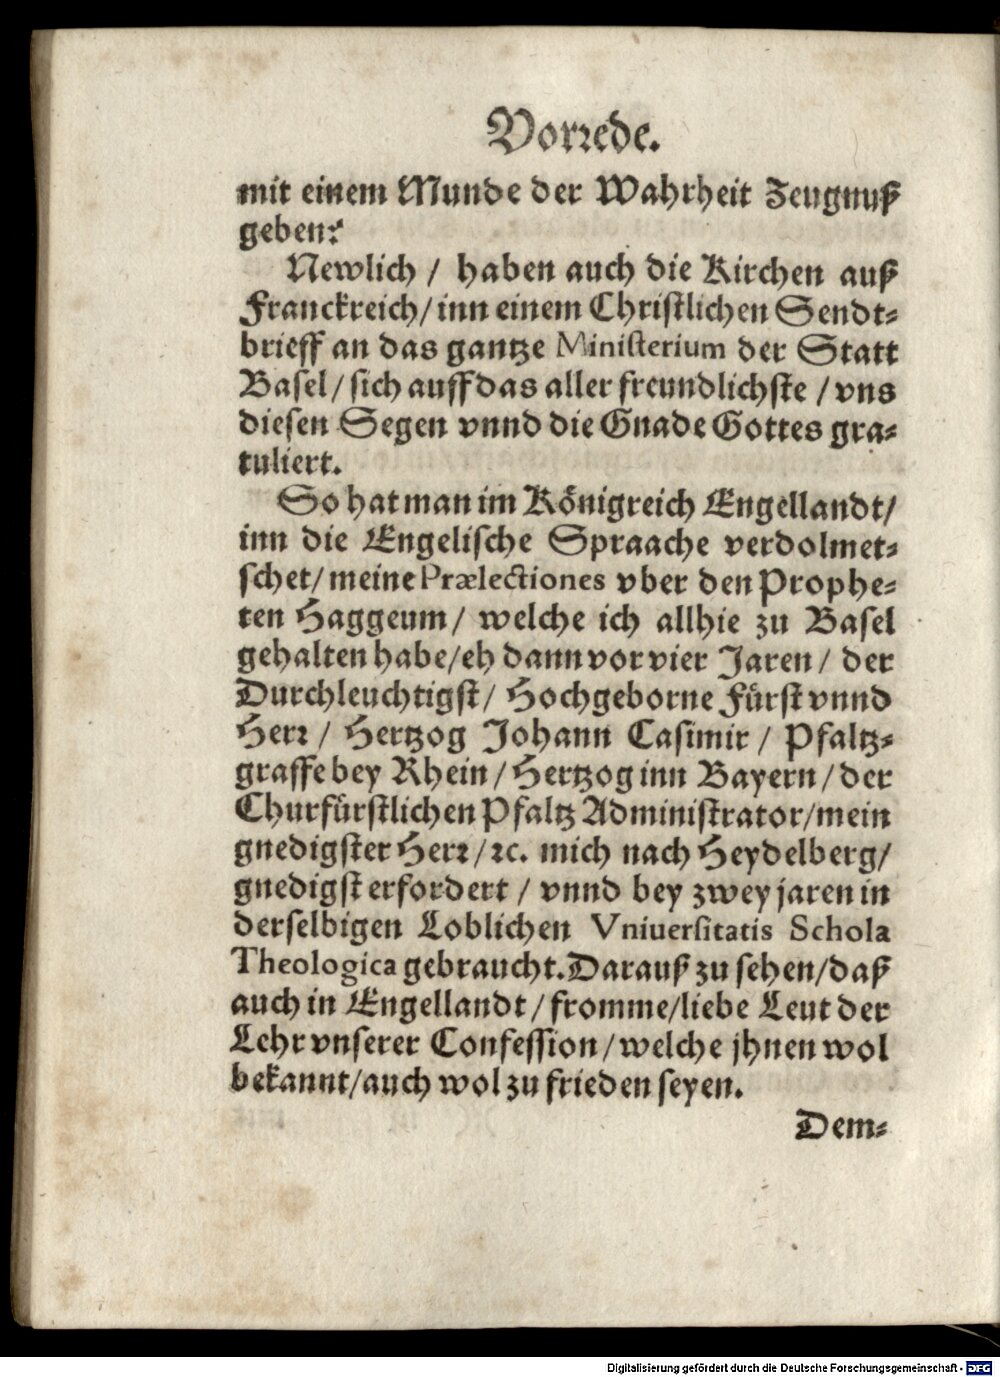 Vorꝛede.
mit einem Munde der Wahrheit Zeugnuß
geben?
Newlich / haben auch die Kirchen auß
Franckreich / inn einem Christlichen Sendt⸗
brieff an das gantze Ministerium der Statt
Basel / sich auff das aller freundlichste / vns
diesen Segen vnnd die Gnade Gottes gra⸗
tuliert.
So hat man im Königreich Engellandt /
inn die Engelische Spraache verdolmet⸗
schet / meine Prælectiones vber den Prophe⸗
ten Haggeum / welche ich allhie zu Basel
gehalten habe / eh dann vor vier Jaren / der
Durchleuchtigst / Hochgeborne Fürst vnnd
Herꝛ / Hertzog Johann Casimir / Pfaltz⸗
graffe bey Rhein / Hertzog inn Bayern / der
Churfürstlichen Pfaltz Administrator / mein
gnedigster Herꝛ / ꝛc. mich nach Heydelberg /
gnedigst erfordert / vnnd bey zwey jaren in
derselbigen Loblichen Vniuersitatis Schola
Theologica gebraucht. Darauß zu sehen / daß
auch in Engellandt / fromme / liebe Leut der
Lehr vnserer Confession / welche jhnen wol
bekannt / auch wol zu frieden seyen.
Dem⸗
Digitalisierung gefördert durch die Deutsche Forschungsgemeinschaft - DFG